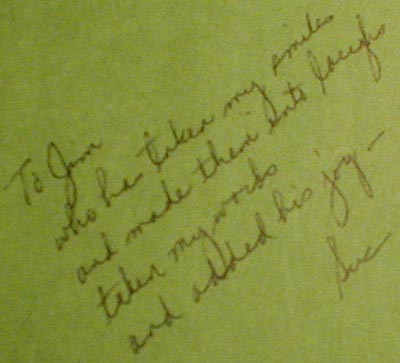 To Jim
who has taken my smiles
and made them into laughs
taken my words
and added his joy —
Sue